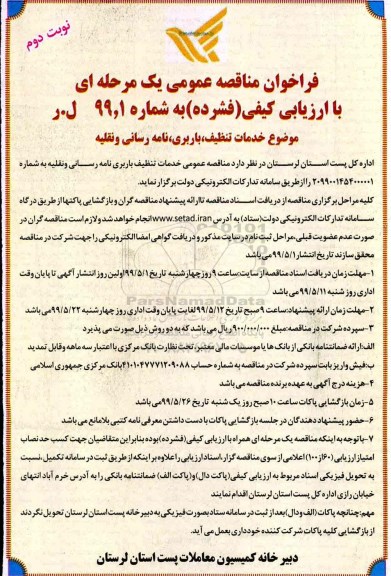 نوبت دوم
فراخوان مناقصه عمومی یک مرحله ای
با ارزیابی کیفی(فشرده)به شماره ۹۹,۱ ل.ر
موضوع خدمات تنظیف،باربری،نامه رسانی ونقلیه
اداره کل پست استان لرستان در نظر دارد مناقصه عمومی خدمات تنظیف باربری نامه رسانی ونقلیه به شماره
۲۰۹۹۰۰۱۴۵۴۰۰۰۰۰۱ را ازطریق سامانه تدارکات الکترونیکی دولت برگزار نماید.
کلیه مراحل برگزاری مناقصه از دریافت اسناد مناقصه تا ارائه پیشنهاد مناقصه گران و بازگشایی پاکتها از طریق درگاه
سامانه تدارکات الکترونیکی دولت(ستاد) به آدرس www.setad.iran انجام خواهد شد ولازم است مناقصه گران در
صورت عدم عضویت قبلی،مراحل ثبت نام در سایت مذکور و دریافت گواهی امضا الکترونیکی را جهت شرکت در مناقصه
محقق سازند تاریخ انتشار ۹۹/۵/۱ می باشد
۱-مهلت زمان دریافت اسناد مناقصه از سایت:ساعت ۹ روز چهارشنبه تاریخ ۹۹/۵/۱ اولین روز انتشار آگهی تا پایان وقت
اداری روز شنبه ۹۹/۵/۱۱ می باشد
۲-مهلت زمان ارائه پیشنهاد:ساعت ۹ صبح تاریخ ۹۹/۵/۱۲ لغایت پایان وقت اداری روز چهارشنبه ۹۹/۵/۲۲ می باشد
۳-سپرده شرکت در مناقصه:مبلغ ۹۰۰/۰۰۰/۰۰۰ ریال می باشد که به دو روش ذیل صورت می پذیرد
الف:ارائه ضمانتنامه بانکی از بانک ها یا موسسات مالی معتبر،تحت نظارت بانک مرکزی با اعتبار سه ماهه وقابل تمدید
ب:فیش واریز بابت سپرده شرکت در مناقصه به شماره حساب ۴۱۰۱۰۴۷۷۷۱۲۰۹۰۸۸ بانک مرکزی جمهوری اسلامی
۴-هزینه درج آگهی به عهده برنده مناقصه می باشد
۵-زمان بازگشایی پاکات ساعت ۱۰ صبح روز یک شنبه تاریخ ۹۹/۵/۲۶ می باشد
۶-حضور پیشنهاد دهندگان در جلسه بازگشایی پاکات با دست داشتن معرفی نامه کتبی بلامانع می باشد
۷-با توجه به اینکه مناقصه یک مرحله ای همراه با ارزیابی کیفی(فشرده)بوده بنابراین متقاضیان جهت کسب حد نصاب
امتیاز ارزیابی (۶۰ از ۱۰۰) اعلامی از سوی مناقصه گزار،اسناد ارزیابی را علاوه بر اینکه از طریق ثبت در سامانه تکمیل،نسبت
به تحویل فیزیکی اسناد مربوط به ارزیابی کیفی(پاکت دال)و(پاکت الف) ضمانتنامه بانکی را به آدرس خرم آباد انتهای
خیابان رازی اداره کل پست استان لرستان اقدام نمایند
مهم:چنانچه پاکات (الف ودال)بعد از ثبت در سامانه ستاد بصورت فیزیکی به دبیر خانه پست استان لرستان تحویل نگردند
از بازگشایی کلیه پاکات شرکت کننده خودداری بعمل می آید.
دبیر خانه کمیسیون معاملات پست استان لرستان